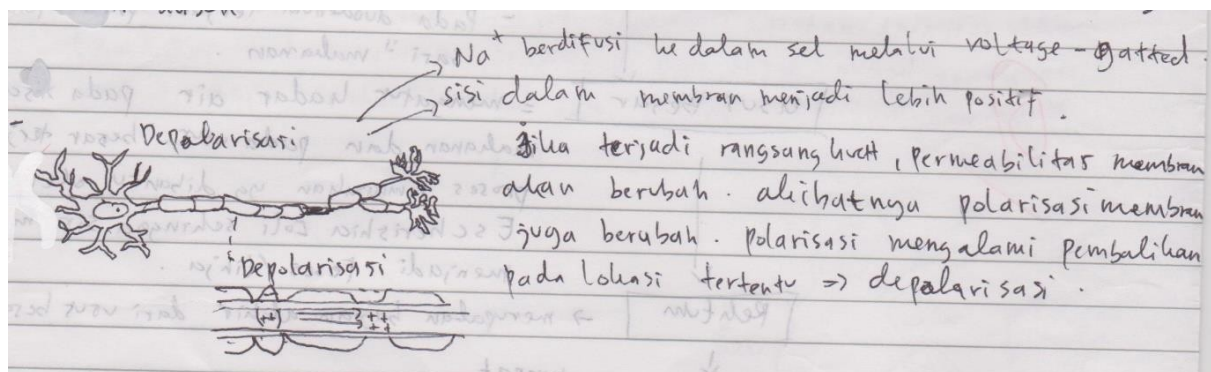 Na⁺ berdifusi ke dalam sel melalui voltage-gatted.
sisi dalam membran menjadi lebih positif.
- Depolarisasi
jika terjadi rangsang kuat, permeabilitas membran
akan berubah. akibatnya polarisasi membran
juga berubah. polarisasi mengalami pembalikan
Depolarisasi
pada lokasi tertentu => depolarisasi.